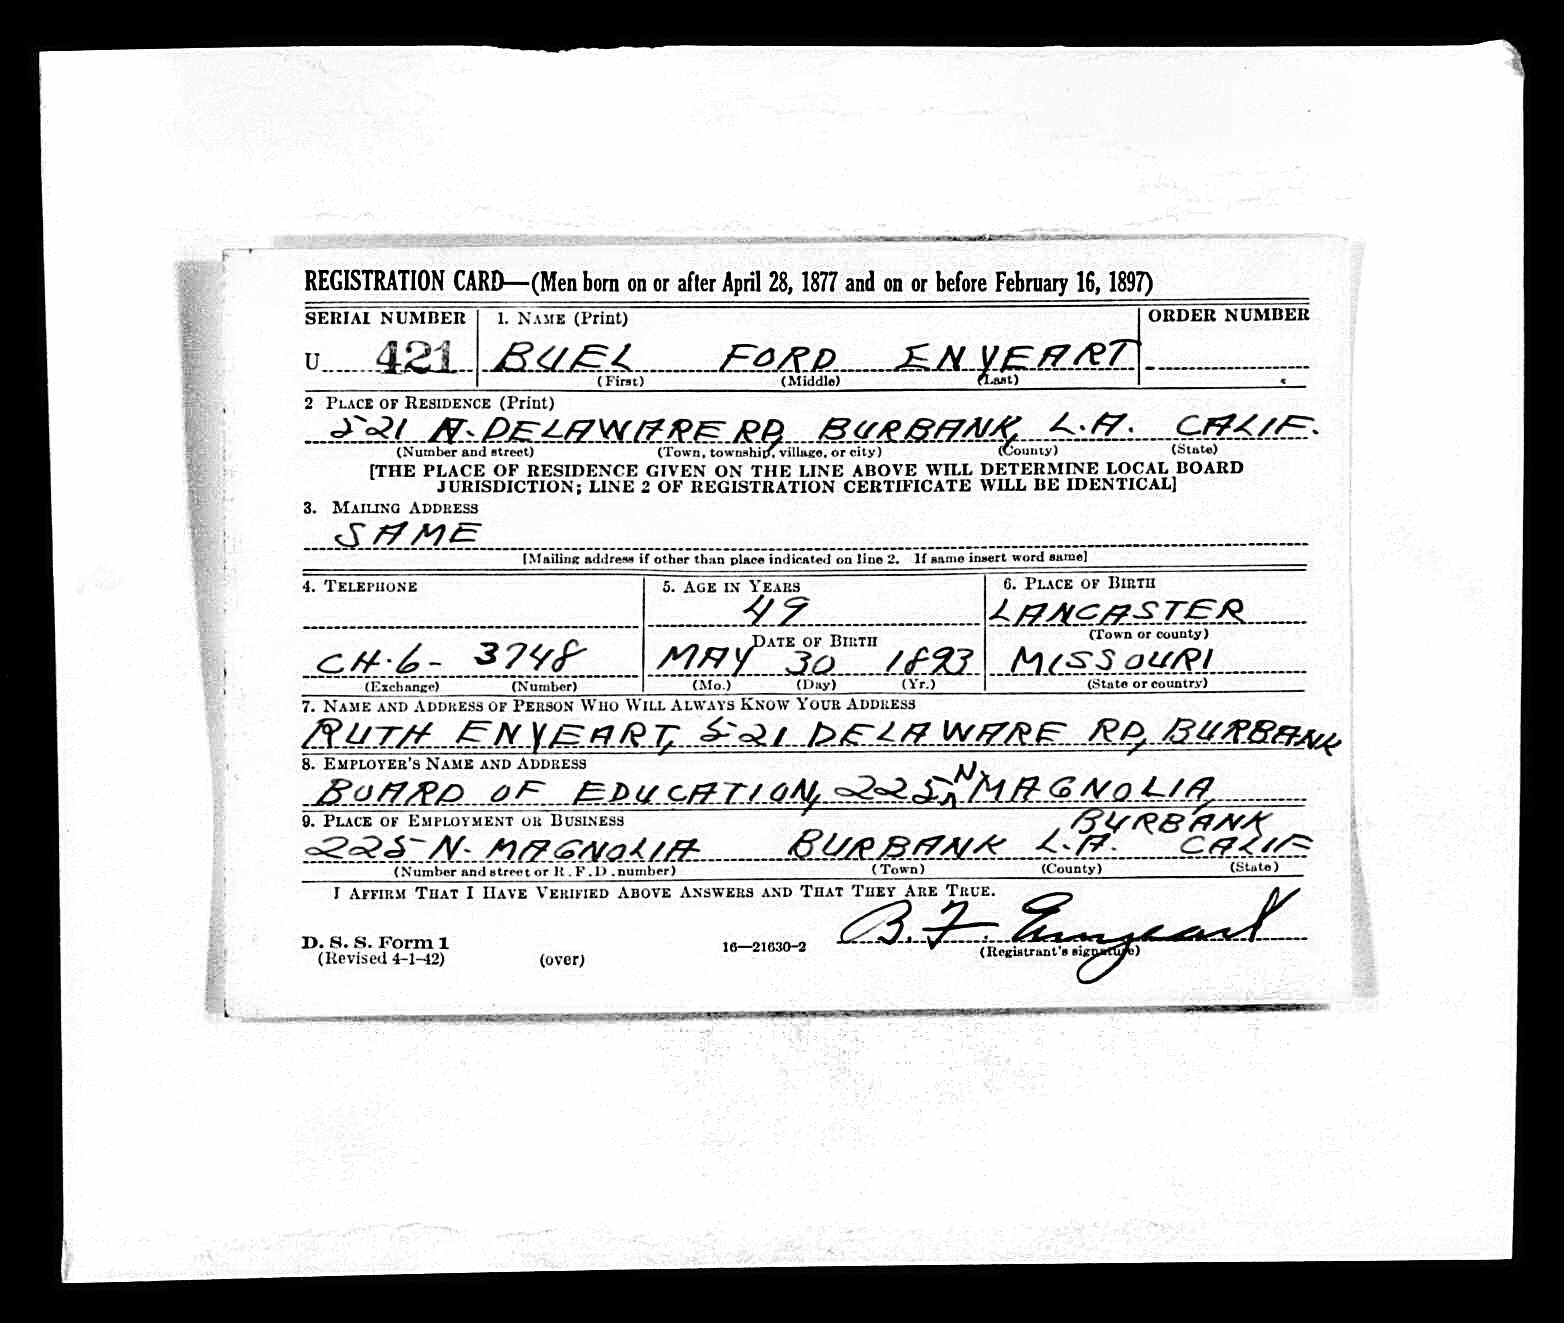 REGISTRATION CARD—(Men born on or after April 28, 1877 and on or before February 16, 1897)
SERIAL NUMBER 1. NAME (Print) ORDER NUMBER
U 421 BUEL FORD ENYEART
(First) (Middle) (Last)
2 PLACE OF RESIDENCE (Print)
521 DELAWARE RD, BURBANK, L.A. CALIF.
(Number and street) (Town, township, village, or city) (County) (State)
[THE PLACE OF RESIDENCE GIVEN ON THE LINE ABOVE WILL DETERMINE LOCAL BOARD
JURISDICTION; LINE 2 OF REGISTRATION CERTIFICATE WILL BE IDENTICAL]
3. MAILING ADDRESS
SAME
[Mailing address if other than place indicated on line 2. If same insert word same]
4. TELEPHONE 5. AGE IN YEARS 6. PLACE OF BIRTH
49 LANCASTER
DATE OF BIRTH (Town or county)
CH.6- 3748 MAY 30 1893 MISSOURI
(Exchange) (Number) (Mo.) (Day) (Yr.) (State or country)
7. NAME AND ADDRESS OF PERSON WHO WILL ALWAYS KNOW YOUR ADDRESS
RUTH ENYEART, 521 DELAWARE RD, BURBANK
8. EMPLOYER'S NAME AND ADDRESS
BOARD OF EDUCATION, 225 N. MAGNOLIA,
9. PLACE OF EMPLOYMENT OR BUSINESS BURBANK
225 N. MAGNOLIA BURBANK L.A. CALIF
(Number and street or R. F. D. number) (Town) (County) (State)
I AFFIRM THAT I HAVE VERIFIED ABOVE ANSWERS AND THAT THEY ARE TRUE.
B. F. Enyeart
D. S. S. Form 1 16—21630-2 (Registrant's signature)
(Revised 4-1-42) (over)